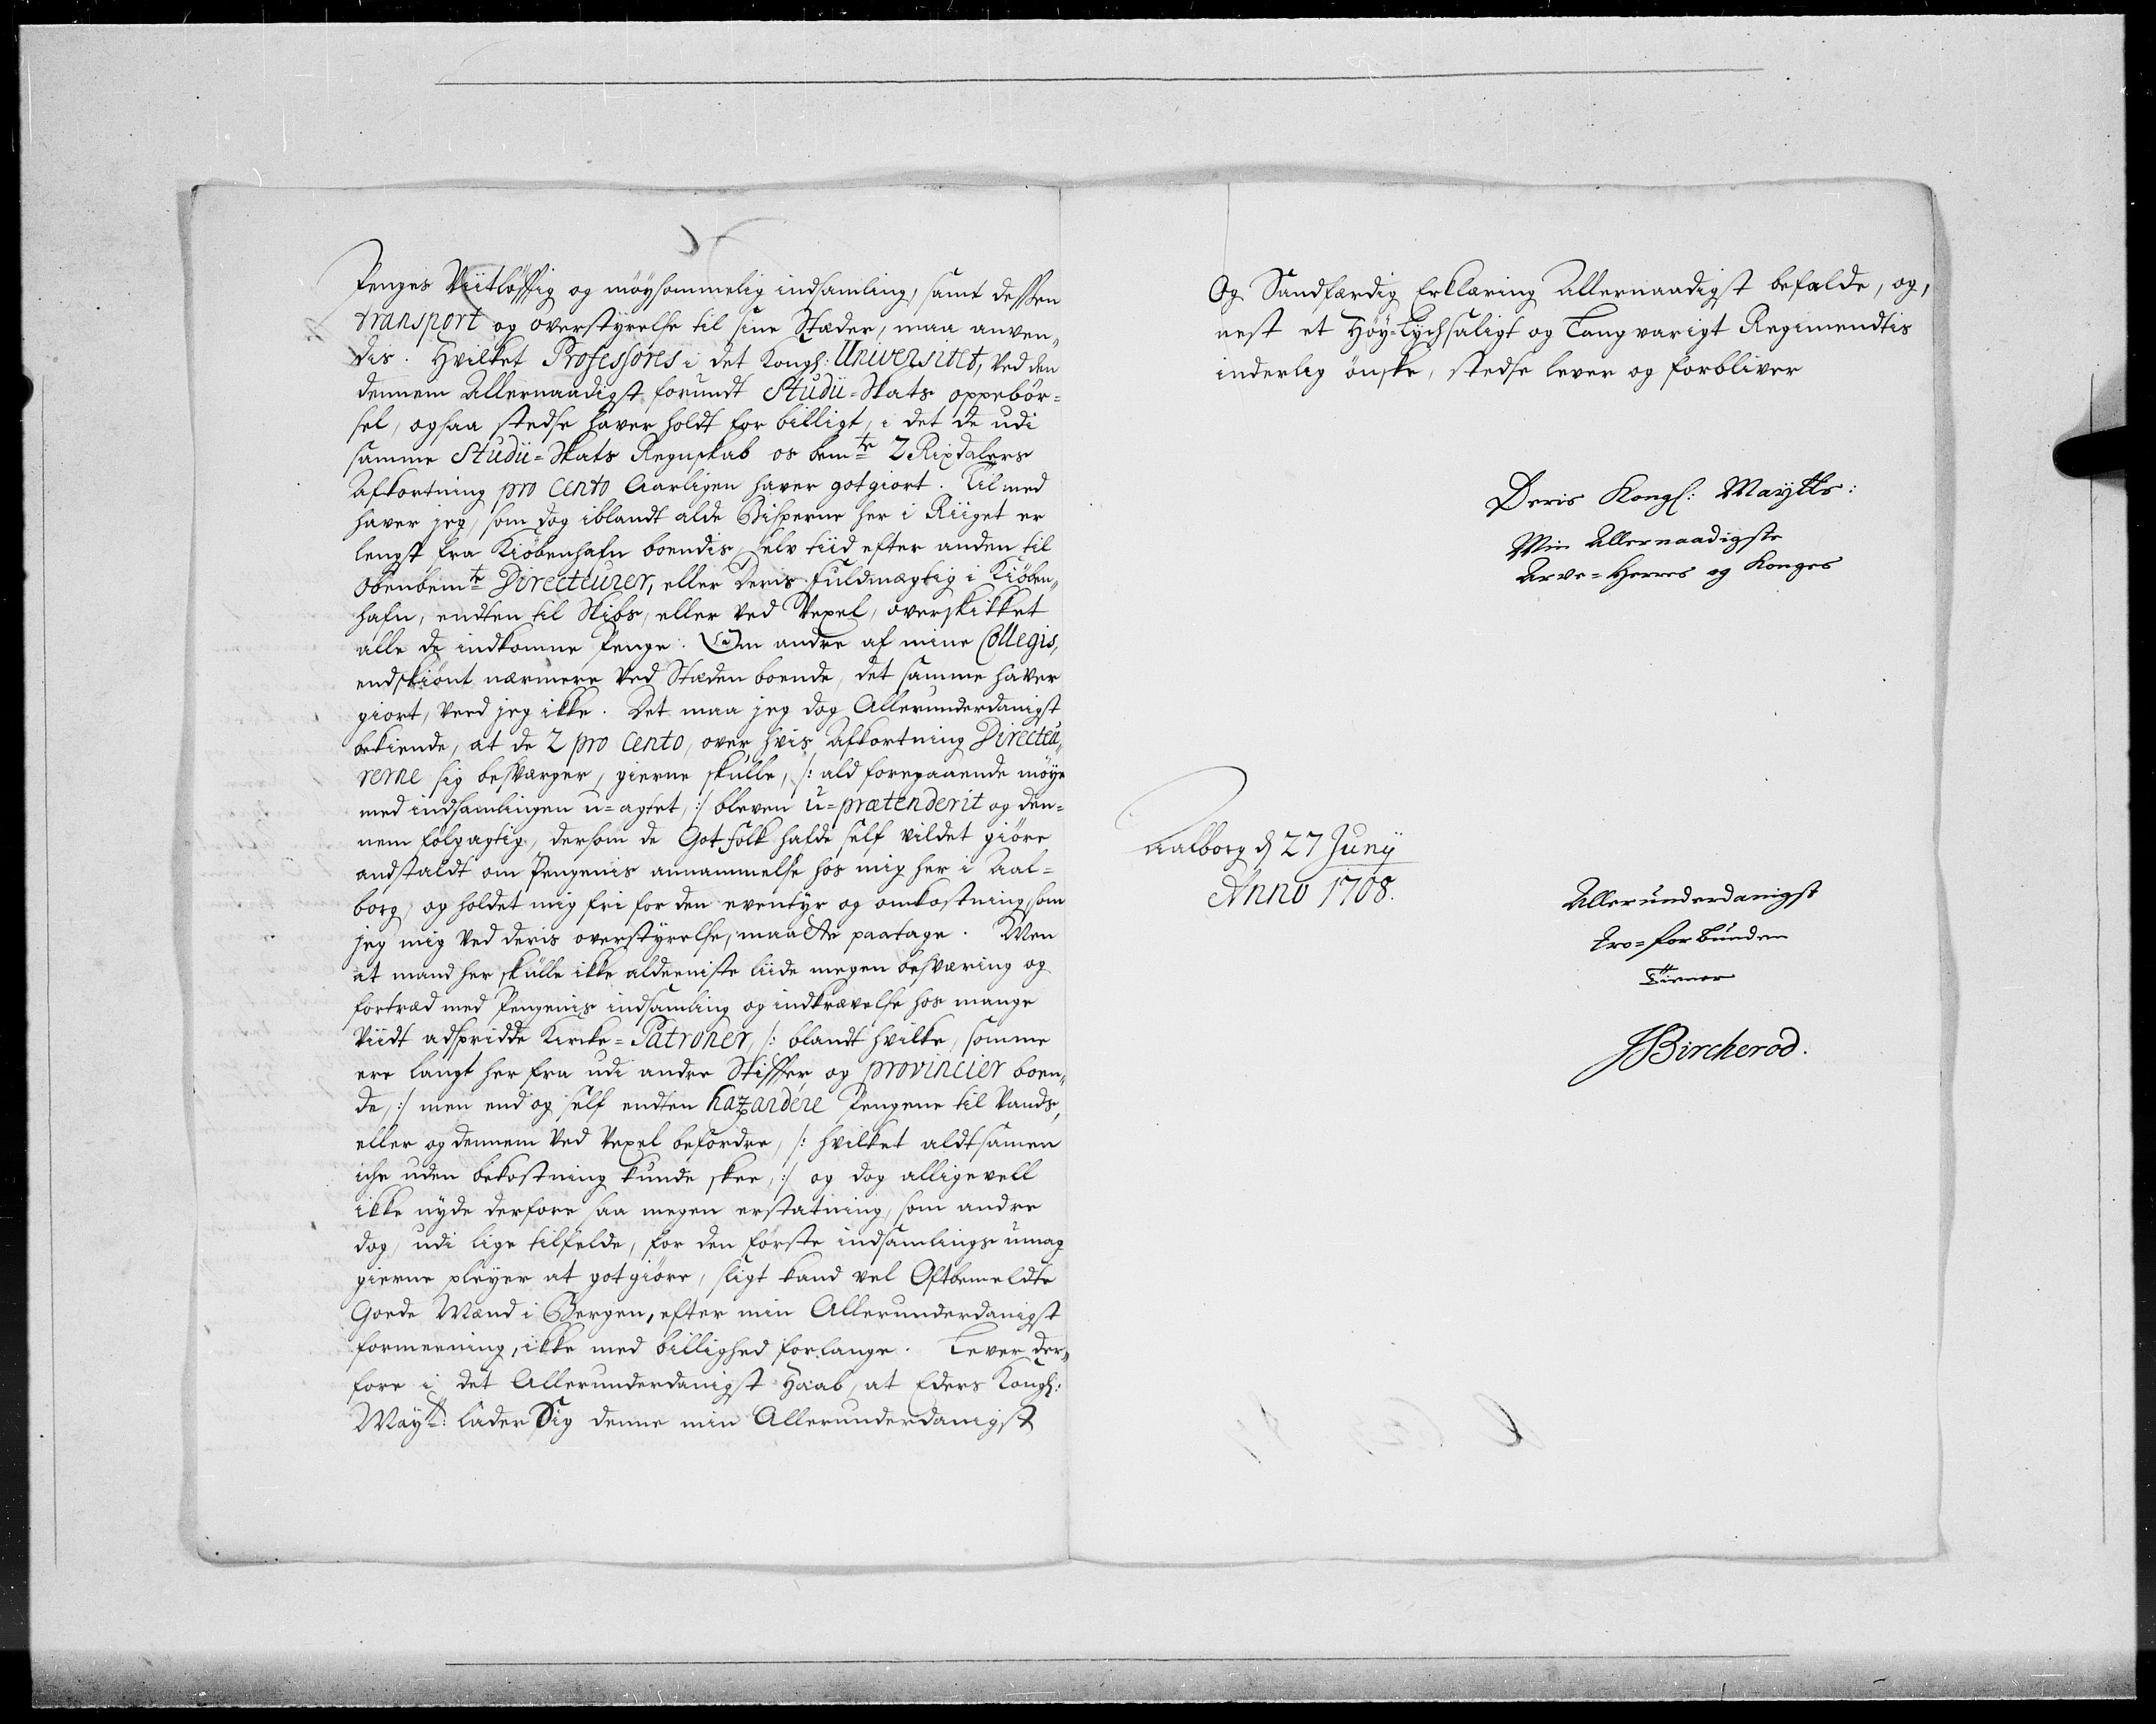 Penges Viitløfftig og møysommelig indsamling, samt dessen
transport og overstyrelse til sine Stæder, maa anven„
dis. Hvilket Professores i det Kongl: Universitet, ved den
dennem Allernaadigst forundt Studii-Skats oppebør=
sel, ogsaa stedse haver holdt for billigt, i det de udi
samme Studii-Skats Regnskab os bemte 2 Rixdalers
Afkortning pro cento Aarligen haver gotgiort. Til med
haver jeg, som dog iblandt alde Bisperne her i Riiget er
lengst fra Kiøbenhafn boendis, selv tiid efter anden til
Obenbemte Directeurer, eller deris fuldmægtig i Kiøben„
hafn, endten til Skibs, eller ved Vexel, overskikket
alle de indkomne Penge. Om andre af mine Collegis,
endskiønt nærmere ved Stæden boende, det samme haver
giort, veed jeg ikke. Det maa jeg dog Allerunderdanigst
bekiende, at de 2 pro cento, over hvis Afkortning Directeu„
rerne sig besværger, gierne skulle, /: ald foregaaende møye
med indsamlingen u-agtet, :/ bleven u-prætenderit og den=
nem følgagtig, dersom de Got folk hafde self vildet giøre
andstaldt om Pengenis annammelse hos mig her i Aal=
borg, og holdet mig fri for den eventyr og omkostning, som
jeg mig ved deris overstyrelse, maatte paatage. Men
at mand her skulle ikke aldeeniste liide megen besværing og
fortræd med Pengenis indsamling og indkrævelse hos mange
Viidt adspridde Kircke-Patroner, /: blandt hvilke, somme
ere langt her fra udi andre Stiffter og provincier boen„
de, :/ men end og self endten hazardere Pengene til Vands,
eller og dennem ved Vexel befordre, /: hvilket aldtsamen
iche uden bekostning kunde skee, :/ og dog alligevell
ikke nyde derfore saa megen erstatning, som andre
dog, udi lige tilfelde, for den første indsamlings umag
gierne pleyer at gotgiøre, sligt kand vel Oftbemeldte
Goede Mænd i Bergen, efter min Allerunderdanigst
formeening, ikke med billighed forlange. Lever der„
fore i det Allerunderdanigst Haab, at Eders Kongl:
Maytt: lader Sig denne min Allerunderdanigst
Og Sandfærdig Erklæring Allernaadigst befalde, og,
nest et Høy-Lychsaligt og Langvarigt Regimendtis
inderlig ønske, stedse lever og forbliver
Deris Kongl: Maytts:
Min Allernaadigste
Arve-Herres og Konges
Aalborg d 27 Junij
Anno 1708.
Allerunderdanigst
Tro-forbunden
Tienner
JBircherod.